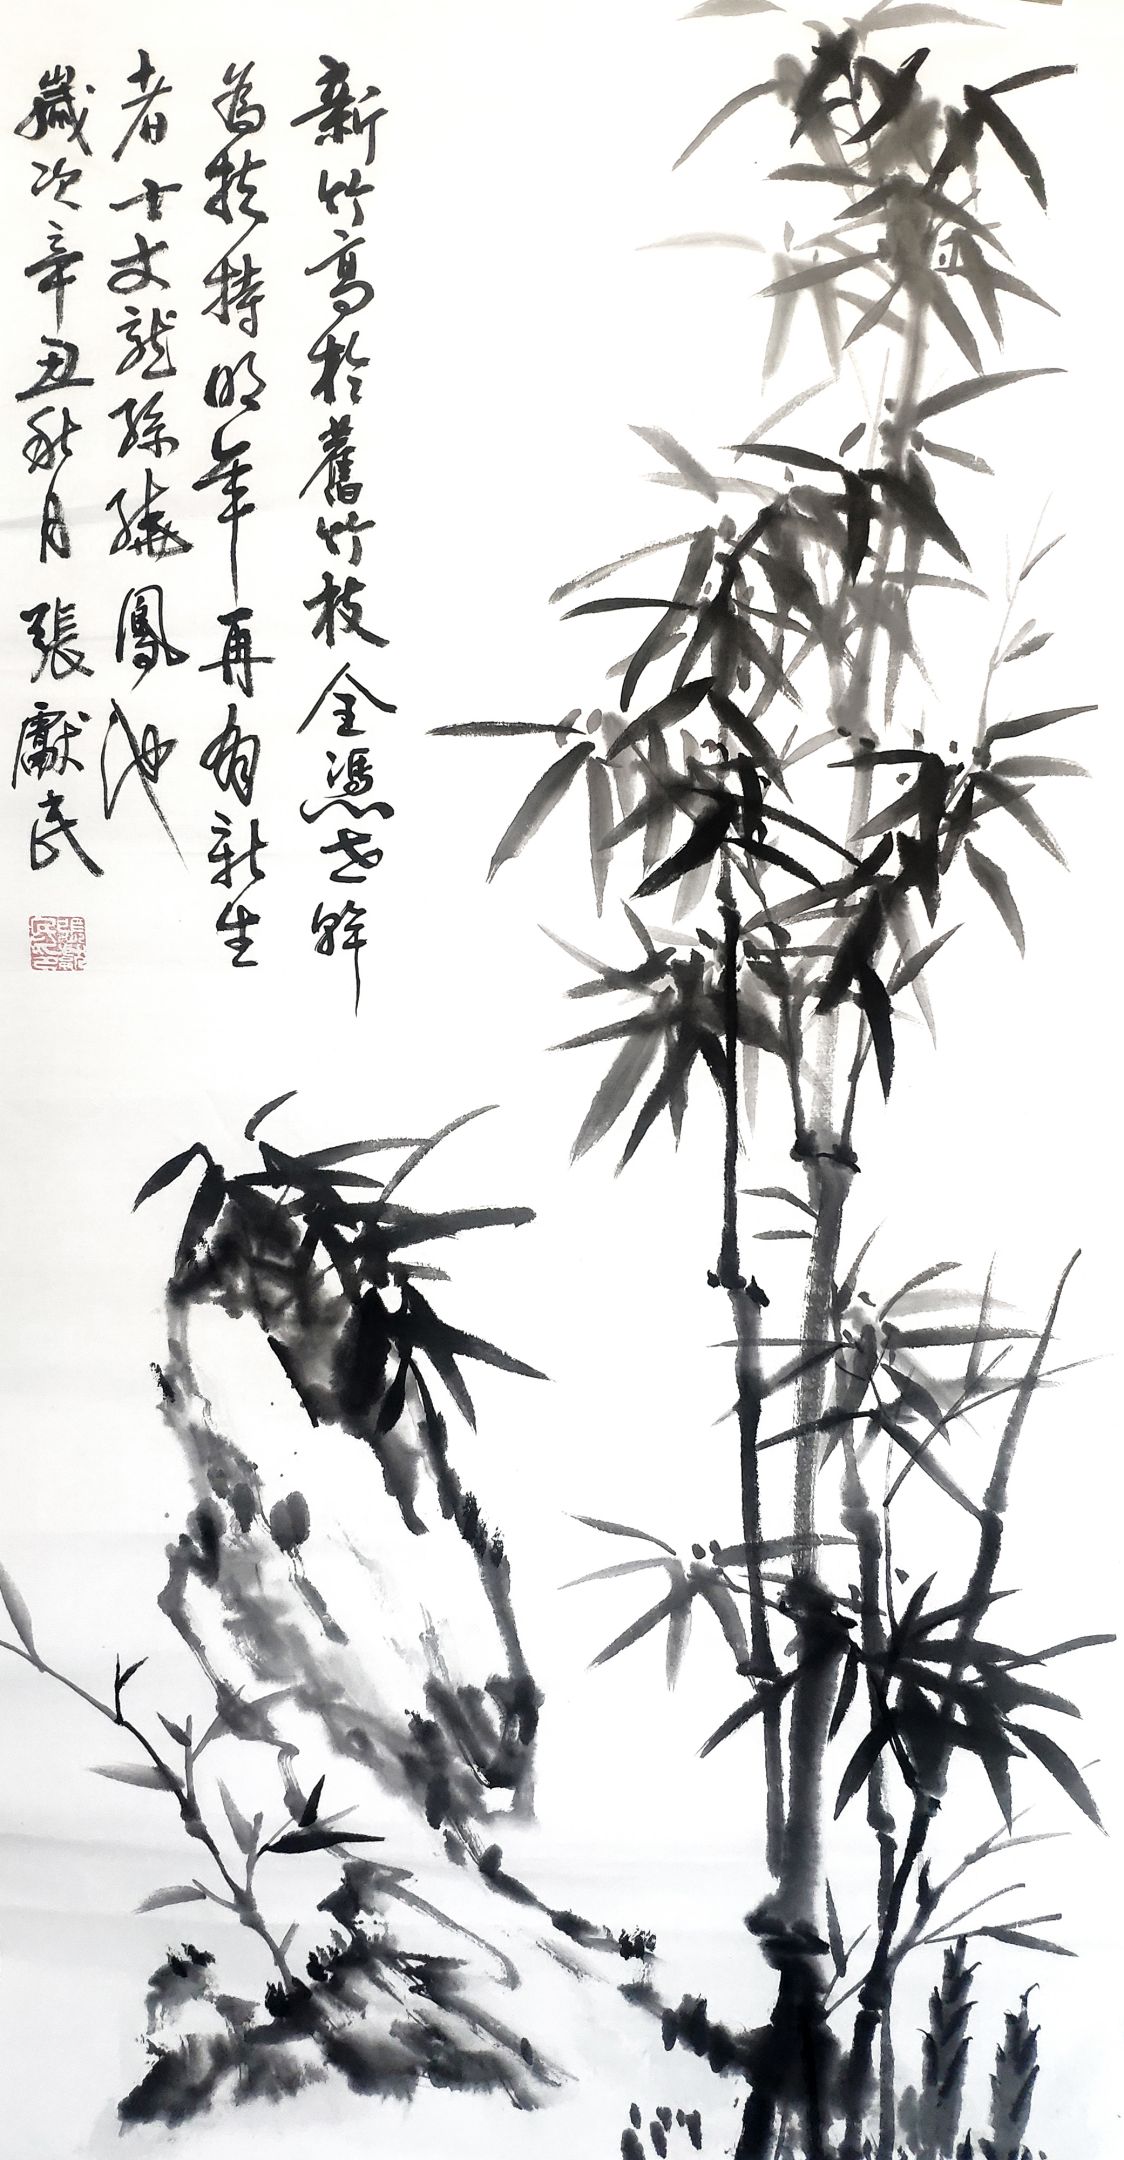 新竹高於舊竹枝全憑老幹
為扶持明年再有新生
者十丈龍孫繞鳳池
歲次辛丑秋月張獻民